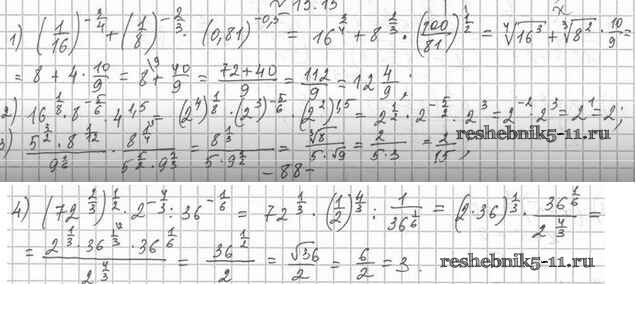 № 15.15
1) (1/16)^(-3/4) + (1/8)^(-2/3) · (0,81)^(-0,5) = 16^(3/4) + 8^(2/3) · (100/81)^(1/2) = ⁴√16³ + ³√8² · 10/9 =
= 8 + 4 · 10/9 = 8 + 40/9 = (72+40)/9 = 112/9 = 12 4/9 ;
2) 16^(1/8) · 8^(-5/6) · 4^(1,5) = (2⁴)^(1/8) · (2³)^(-5/6) · (2²)^(1,5) = 2^(1/2) · 2^(-5/2) · 2³ = 2^(-2) · 2³ = 2¹ = 2;
reshebnik5-11.ru
- 88 -
4) (72^(2/3))^(1/2) · 2^(-4/3) : 36^(-1/6) = 72^(1/3) · (1/2)^(4/3) : 1/36^(1/6) = (2·36)^(1/3) · 36^(1/6)/2^(4/3) =
= (2^(1/3) · 36^(1/3) · 36^(1/6))/2^(4/3) = 36^(1/2)/2 = √36/2 = 6/2 = 3.
reshebnik5-11.ru